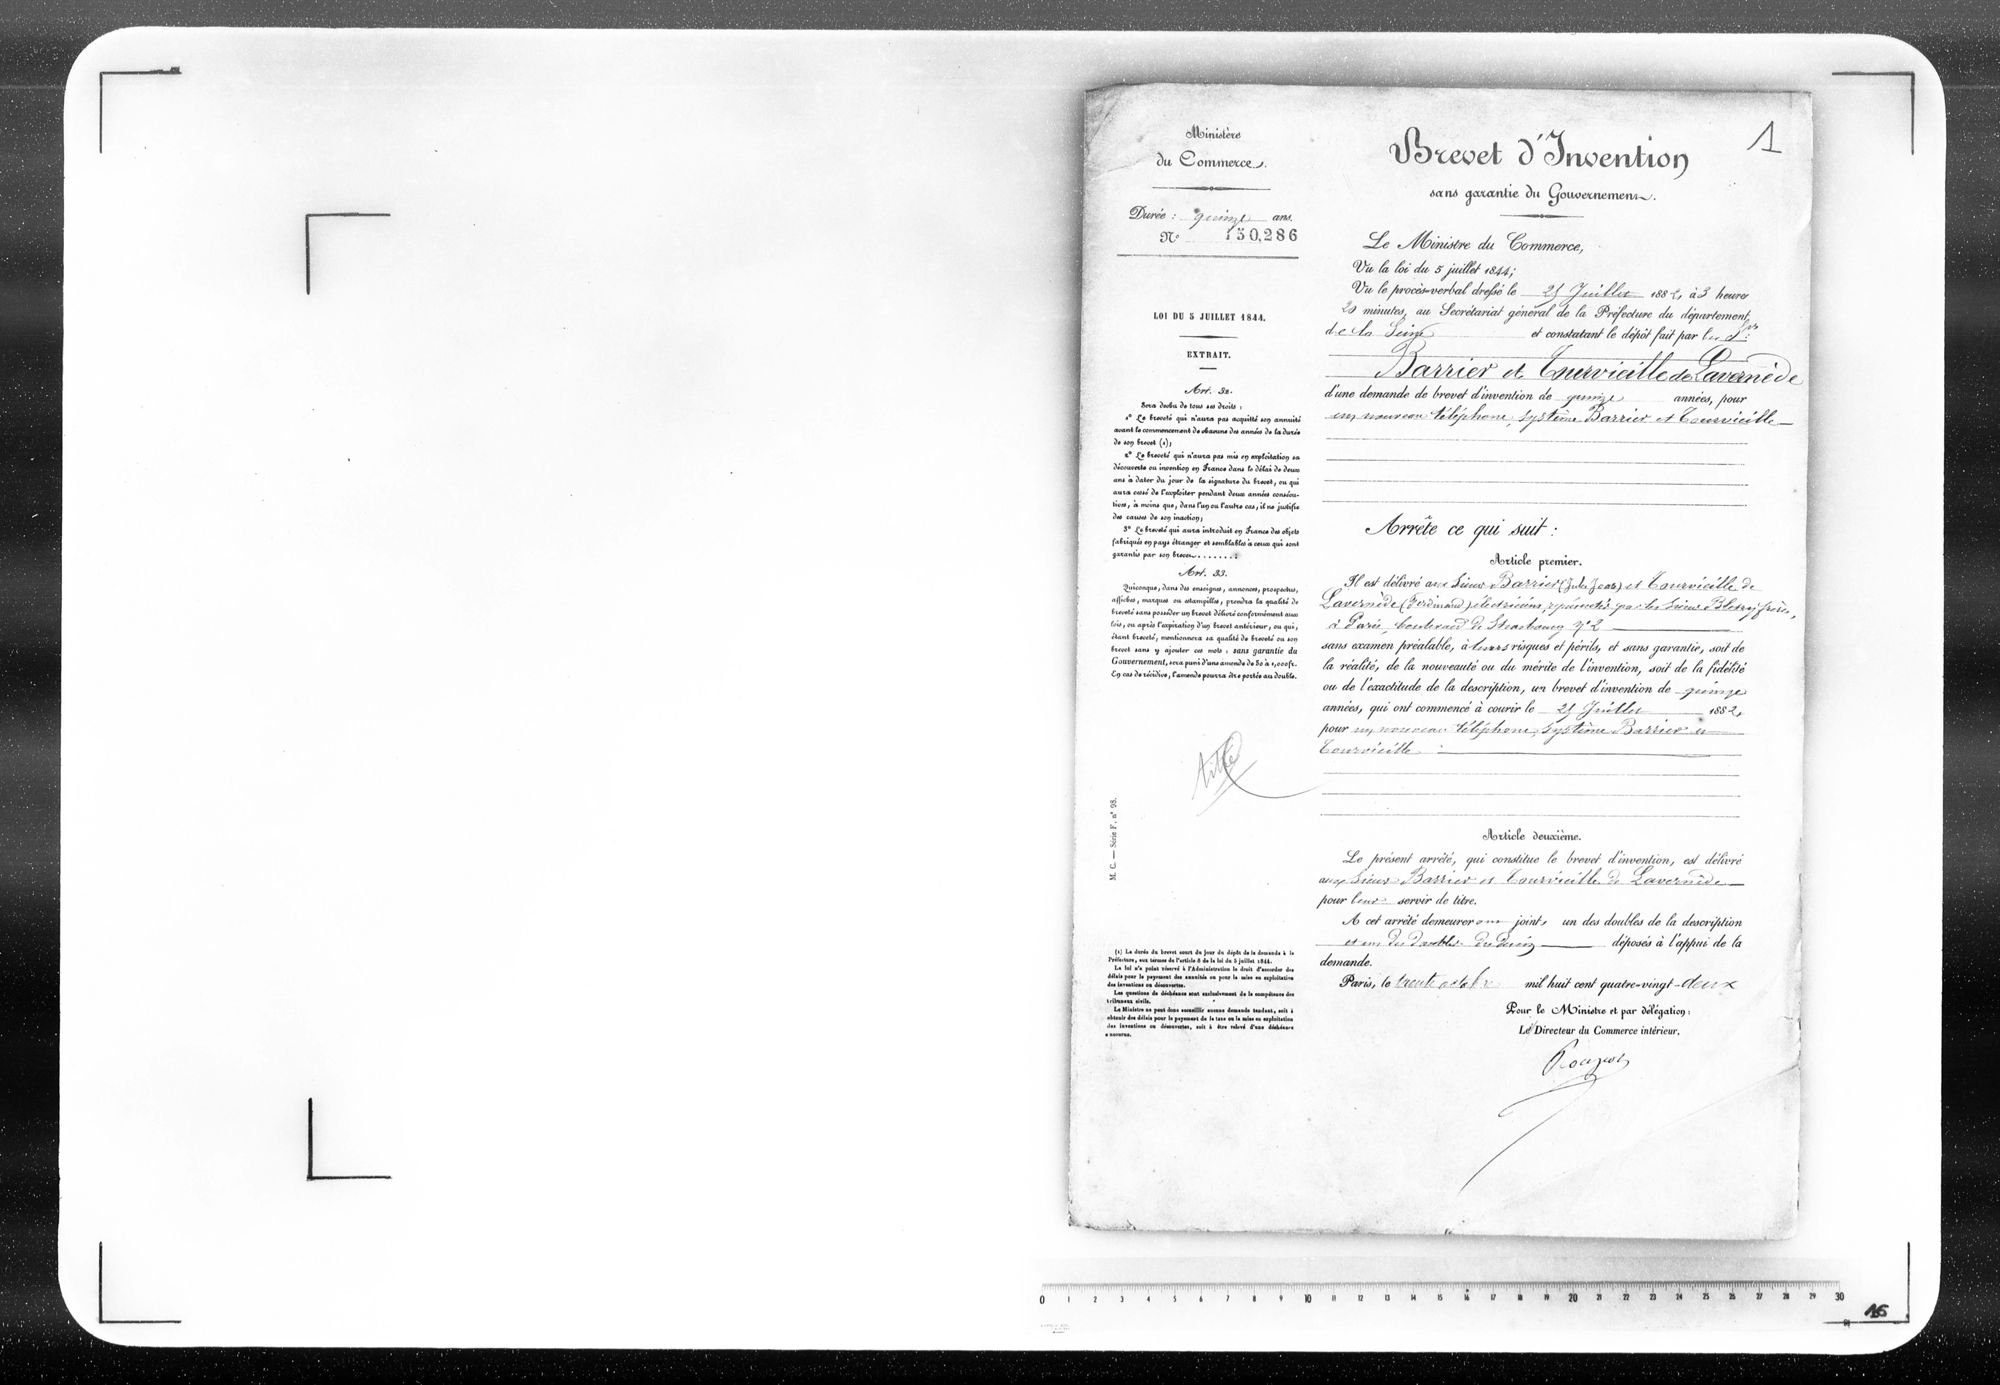 Ministère
du Commerce.
Durée : quinze ans.
N° 150,286
LOI DU 5 JUILLET 1844.
EXTRAIT.
Art. 32.
Sera déchu de tous ses droits :
1° Le breveté qui n'aura pas acquitté son annuité
avant le commencement de chacune des années de la durée
de son brevet (1);
2° Le breveté qui n'aura pas mis en exploitation sa
découverte ou invention en France dans le délai de deux
ans à dater du jour de la signature du brevet, ou qui
aura cessé de l'exploiter pendant deux années consécu-
tives, à moins que, dans l'un ou l'autre cas, il ne justifie
des causes de son inaction;
3° Le breveté qui aura introduit en France des objets
fabriqués en pays étranger et semblables à ceux qui sont
garantis par son brevet........
Art. 33.
Quiconque, dans des enseignes, annonces, prospectus,
affiches, marques ou estampilles, prendra la qualité de
breveté sans posséder un brevet délivré conformément aux
lois, ou après l'expiration d'un brevet antérieur, ou qui,
étant breveté, mentionnera sa qualité de breveté ou son
brevet sans y ajouter ces mots : sans garantie du
Gouvernement, sera puni d'une amende de 50 à 1,000 fr.
En cas de récidive, l'amende pourra être portée au double.
titre
M. C. — Série F. n° 98.
(1) La durée du brevet court du jour du dépôt de la demande à la
Préfecture, aux termes de l'article 8 de la loi du 5 juillet 1844.
La loi n'a point réservé à l'Administration le droit d'accorder des
délais pour le payement des annuités ou pour la mise en exploitation
des inventions ou découvertes.
Les questions de déchéance sont exclusivement de la compétence des
tribunaux civils.
Le Ministre ne peut donc accueillir aucune demande tendant, soit à
obtenir des délais pour le payement de la taxe ou la mise en exploitation
des inventions ou découvertes, soit à être relevé d'une déchéance
encourue.
1
Brevet d'Invention
sans garantie du Gouvernement.
Le Ministre du Commerce,
Vu la loi du 5 juillet 1844;
Vu le procès-verbal dressé le 25 Juillet 1882, à 3 heures
20 minutes, au Secrétariat général de la Préfecture du département
de la Seine et constatant le dépôt fait par les Srs
Barrier et Tourvieille de Lavernède
d'une demande de brevet d'invention de quinze années, pour
un nouveau téléphone, système Barrier et Tourvieille
Arrête ce qui suit :
Article premier.
Il est délivré aux Sieurs Barrier (Jules Jean) et Tourvieille de
Lavernède (Ferdinand) électriciens, représentés par les Sieurs Blétry frères,
à Paris, boulevard de Strasbourg n° 2
sans examen préalable, à leurs risques et périls, et sans garantie, soit de
la réalité, de la nouveauté ou du mérite de l'invention, soit de la fidélité
ou de l'exactitude de la description, un brevet d'invention de quinze
années, qui ont commencé à courir le 25 Juillet 1882,
pour un nouveau téléphone, système Barrier et
Tourvieille
Article deuxième.
Le présent arrêté, qui constitue le brevet d'invention, est délivré
aux Sieurs Barrier et Tourvieille de Lavernède
pour leur servir de titre.
A cet arrêté demeureront joints un des doubles de la description
et un des doubles du dessin déposés à l'appui de la
demande.
Paris, le trente octobre mil huit cent quatre-vingt-deux
Pour le Ministre et par délégation :
Le Directeur du Commerce intérieur.
0 1 2 3 4 5 6 7 8 9 10 11 12 13 14 15 16 17 18 19 20 21 22 23 24 25 26 27 28 29 30
16